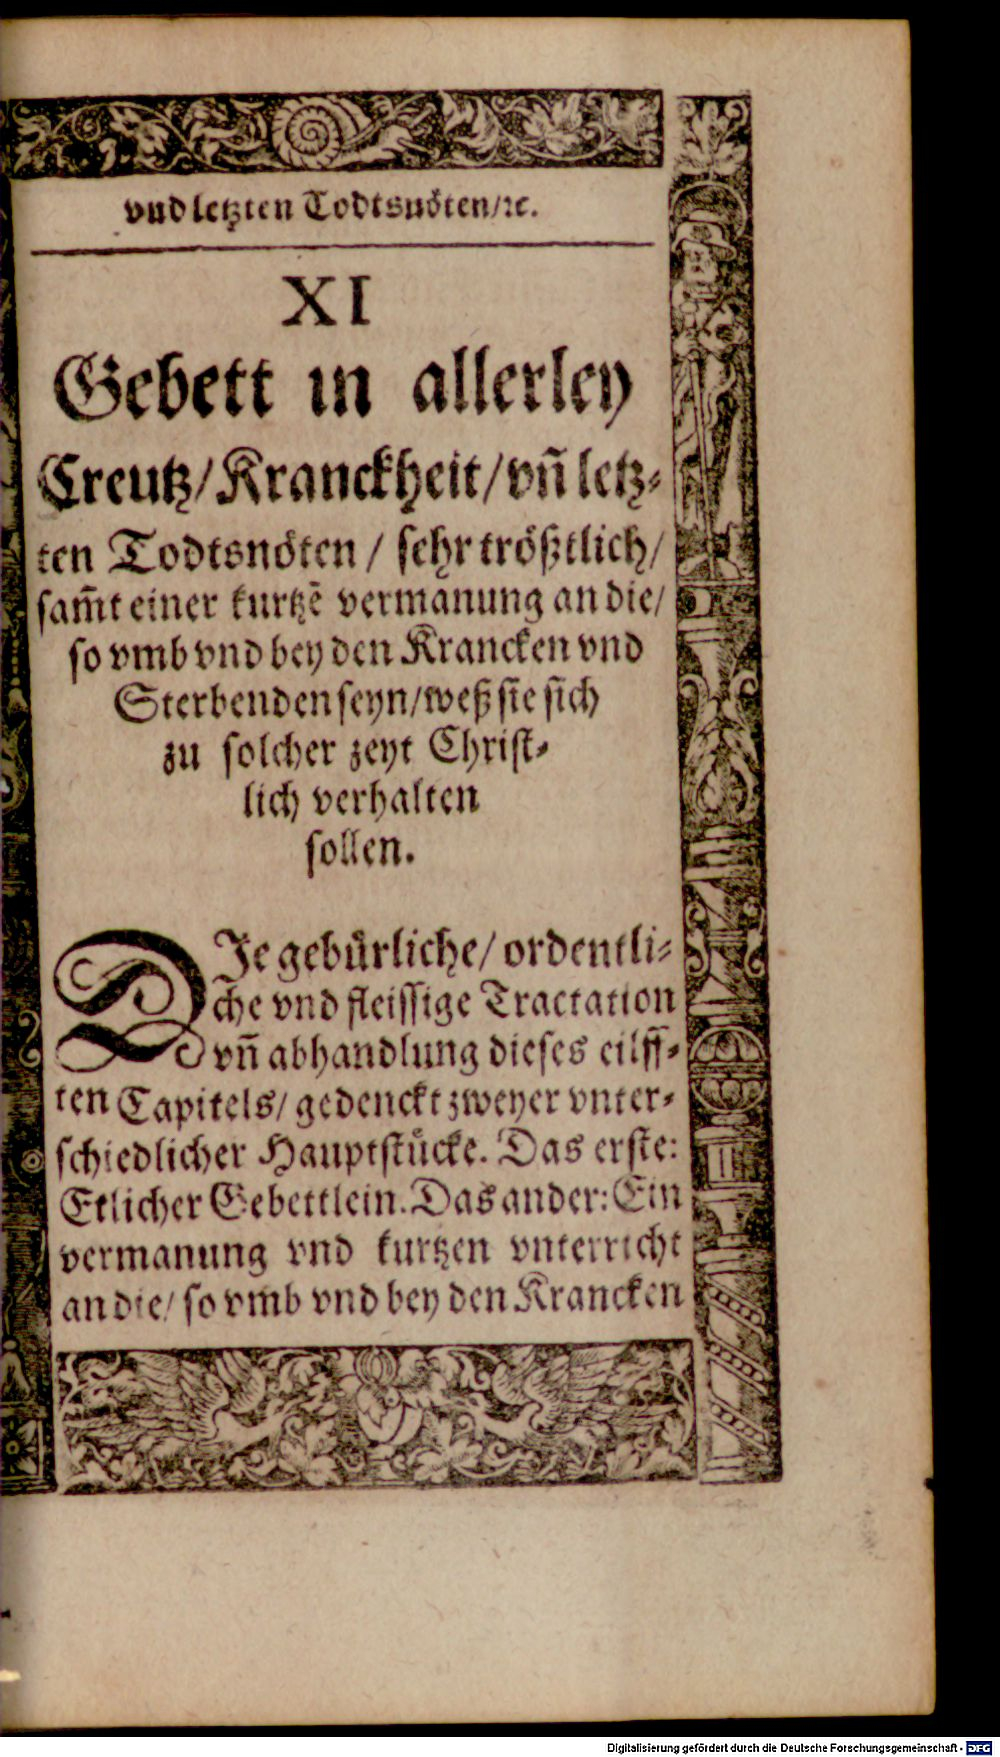 vnd letzten Todtsnöten/ꝛc.
XI
Gebett in allerley
Creutz/Kranckheit/vñ letz-
ten Todtsnöten / sehr trößtlich/
sam̃t einer kurtzẽ vermanung an die/
so vmb vnd bey den Krancken vnd
Sterbenden seyn/weß sie sich
zu solcher zeyt Christ-
lich verhalten
sollen.
DIe gebürliche/ ordentli-
che vnd fleissige Tractation
vñ abhandlung dieses eilff-
ten Capitels/ gedenckt zweyer vnter-
schiedlicher Hauptstücke. Das erste:
Etlicher Gebettlein. Das ander: Ein
vermanung vnd kurtzen vnterricht
an die/ so vmb vnd bey den Krancken
Digitalisierung gefördert durch die Deutsche Forschungsgemeinschaft - DFG